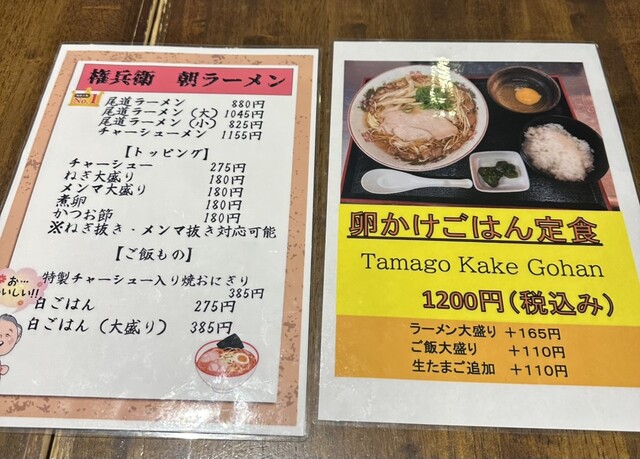 権兵衛 朝ラーメン
No.1
尾道ラーメン 880円
尾道ラーメン(大) 1045円
尾道ラーメン(小) 825円
チャーシューメン 1155円
【トッピング】
チャーシュー 275円
ねぎ大盛り 180円
メンマ大盛り 180円
煮卵 180円
かつお節 180円
※ねぎ抜き・メンマ抜き対応可能
【ご飯もの】
特製チャーシュー入り焼おにぎり
385円
白ごはん 275円
白ごはん(大盛り) 385円
お…
おいしい!!
卵かけごはん定食
Tamago Kake Gohan
1200円(税込み)
ラーメン大盛り +165円
ご飯大盛り +110円
生たまご追加 +110円